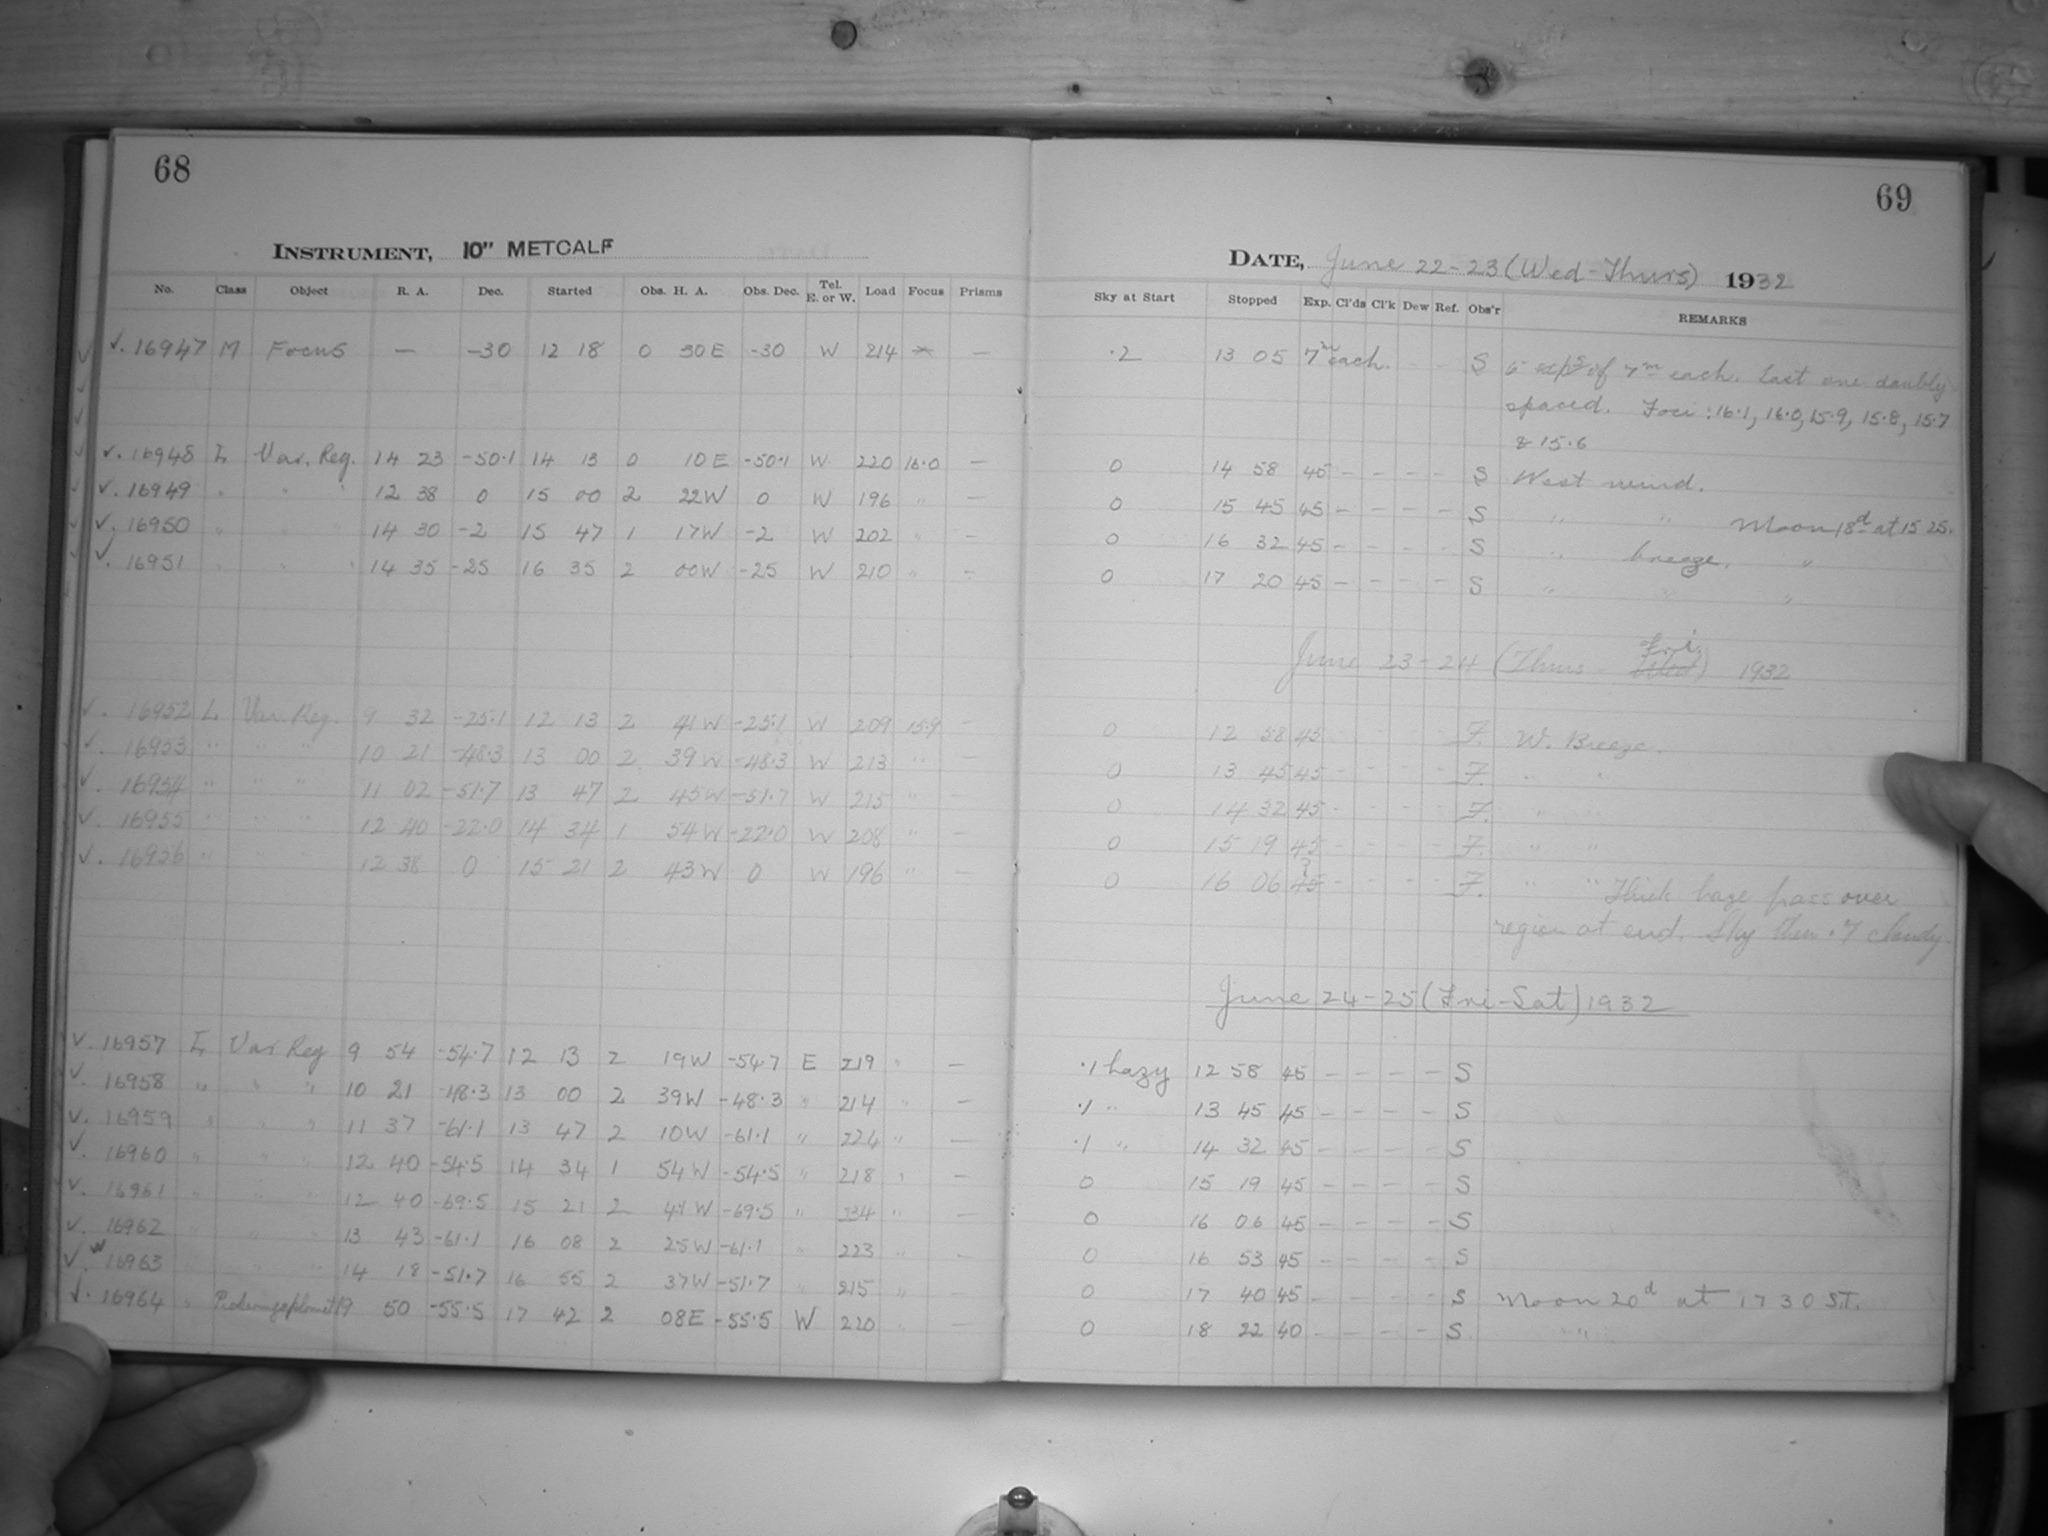 68
INSTRUMENT, 10" METCALF
No. Class Object R. A. Dec. Started Obs. H. A. Obs. Dec. Tel. E. or W. Load Focus Prisms
✓. 16947 M Focus — -30 12 18 0 30 E -30 W 214 —
✓. 16948 L Var. Reg. 14 23 -50.1 14 13 0 10 E -50.1 W 220 16.0 —
✓. 16949 " " " 12 38 0 15 00 2 22 W 0 W 196 " —
✓. 16950 " " " 14 30 -2 15 47 1 17 W -2 W 202 " —
✓. 16951 " " " 14 35 -25 16 35 2 00 W -25 W 210 " —
✓. 16952 L Var. Reg. 9 32 -25.1 12 13 2 41 W -25.1 W 209 15.9 —
✓. 16953 " " " 10 21 -48.3 13 00 2 39 W -48.3 W 213 " —
✓. 16954 " " " 11 02 -51.7 13 47 2 45 W -51.7 W 215 " —
✓. 16955 " " " 12 40 -22.0 14 34 1 54 W -22.0 W 208 " —
✓. 16956 " " " 12 38 0 15 21 2 43 W 0 W 196 " —
✓. 16957 L Var Reg 9 54 -54.7 12 13 2 19 W -54.7 E 219 " —
✓. 16958 " " " 10 21 -48.3 13 00 2 39 W -48.3 " 214 " —
✓. 16959 " " " 11 37 -61.1 13 47 2 10 W -61.1 " 224 " —
✓. 16960 " " " 12 40 -54.5 14 34 1 54 W -54.5 " 218 " —
✓. 16961 " " " 12 40 -69.5 15 21 2 41 W -69.5 " 234 " —
✓. 16962 " " " 13 43 -61.1 16 08 2 25 W -61.1 " 223 " —
✓. 16963 " " " 14 18 -51.7 16 55 2 37 W -51.7 " 215 " —
✓. 16964 " 19 50 -55.5 17 42 2 08 E -55.5 W 220 " —
69
DATE, June 22-23 (Wed-Thurs) 1932
Sky at Start Stopped Exp. Cl'ds Cl'k Dew Ref. Obs'r REMARKS
.2 13 05 7m each. - - S 6 exps of 7m each. Last one doubly
spaced. Foci: 16.1, 16.0, 15.9, 15.8, 15.7
& 15.6
0 14 58 45 - - - - S West wind.
0 15 45 45 - - - - S " " Moon 18d at 15 25.
0 16 32 45 - - - - S " breeze. "
0 17 20 45 - - - - S " " "
June 23-24 (Thurs - Fri.) 1932
0 12 58 45 - - - - F. W. Breeze.
0 13 45 45 - - - - F. " "
0 14 32 45 - - - - F. " "
0 15 19 45 - - - - F. " "
0 16 06 45? - - - - F. " " Thick haze pass over
region at end. Sky then .7 cloudy.
June 24-25 (Fri-Sat) 1932
.1 hazy 12 58 45 - - - - S
.1 " 13 45 45 - - - - S
.1 " 14 32 45 - - - - S
0 15 19 45 - - - - S
0 16 06 45 - - - - S
0 16 53 45 - - - - S
0 17 40 45 - - - - S Moon 20d at 17 30 S.T.
0 18 22 40 - - - - S "